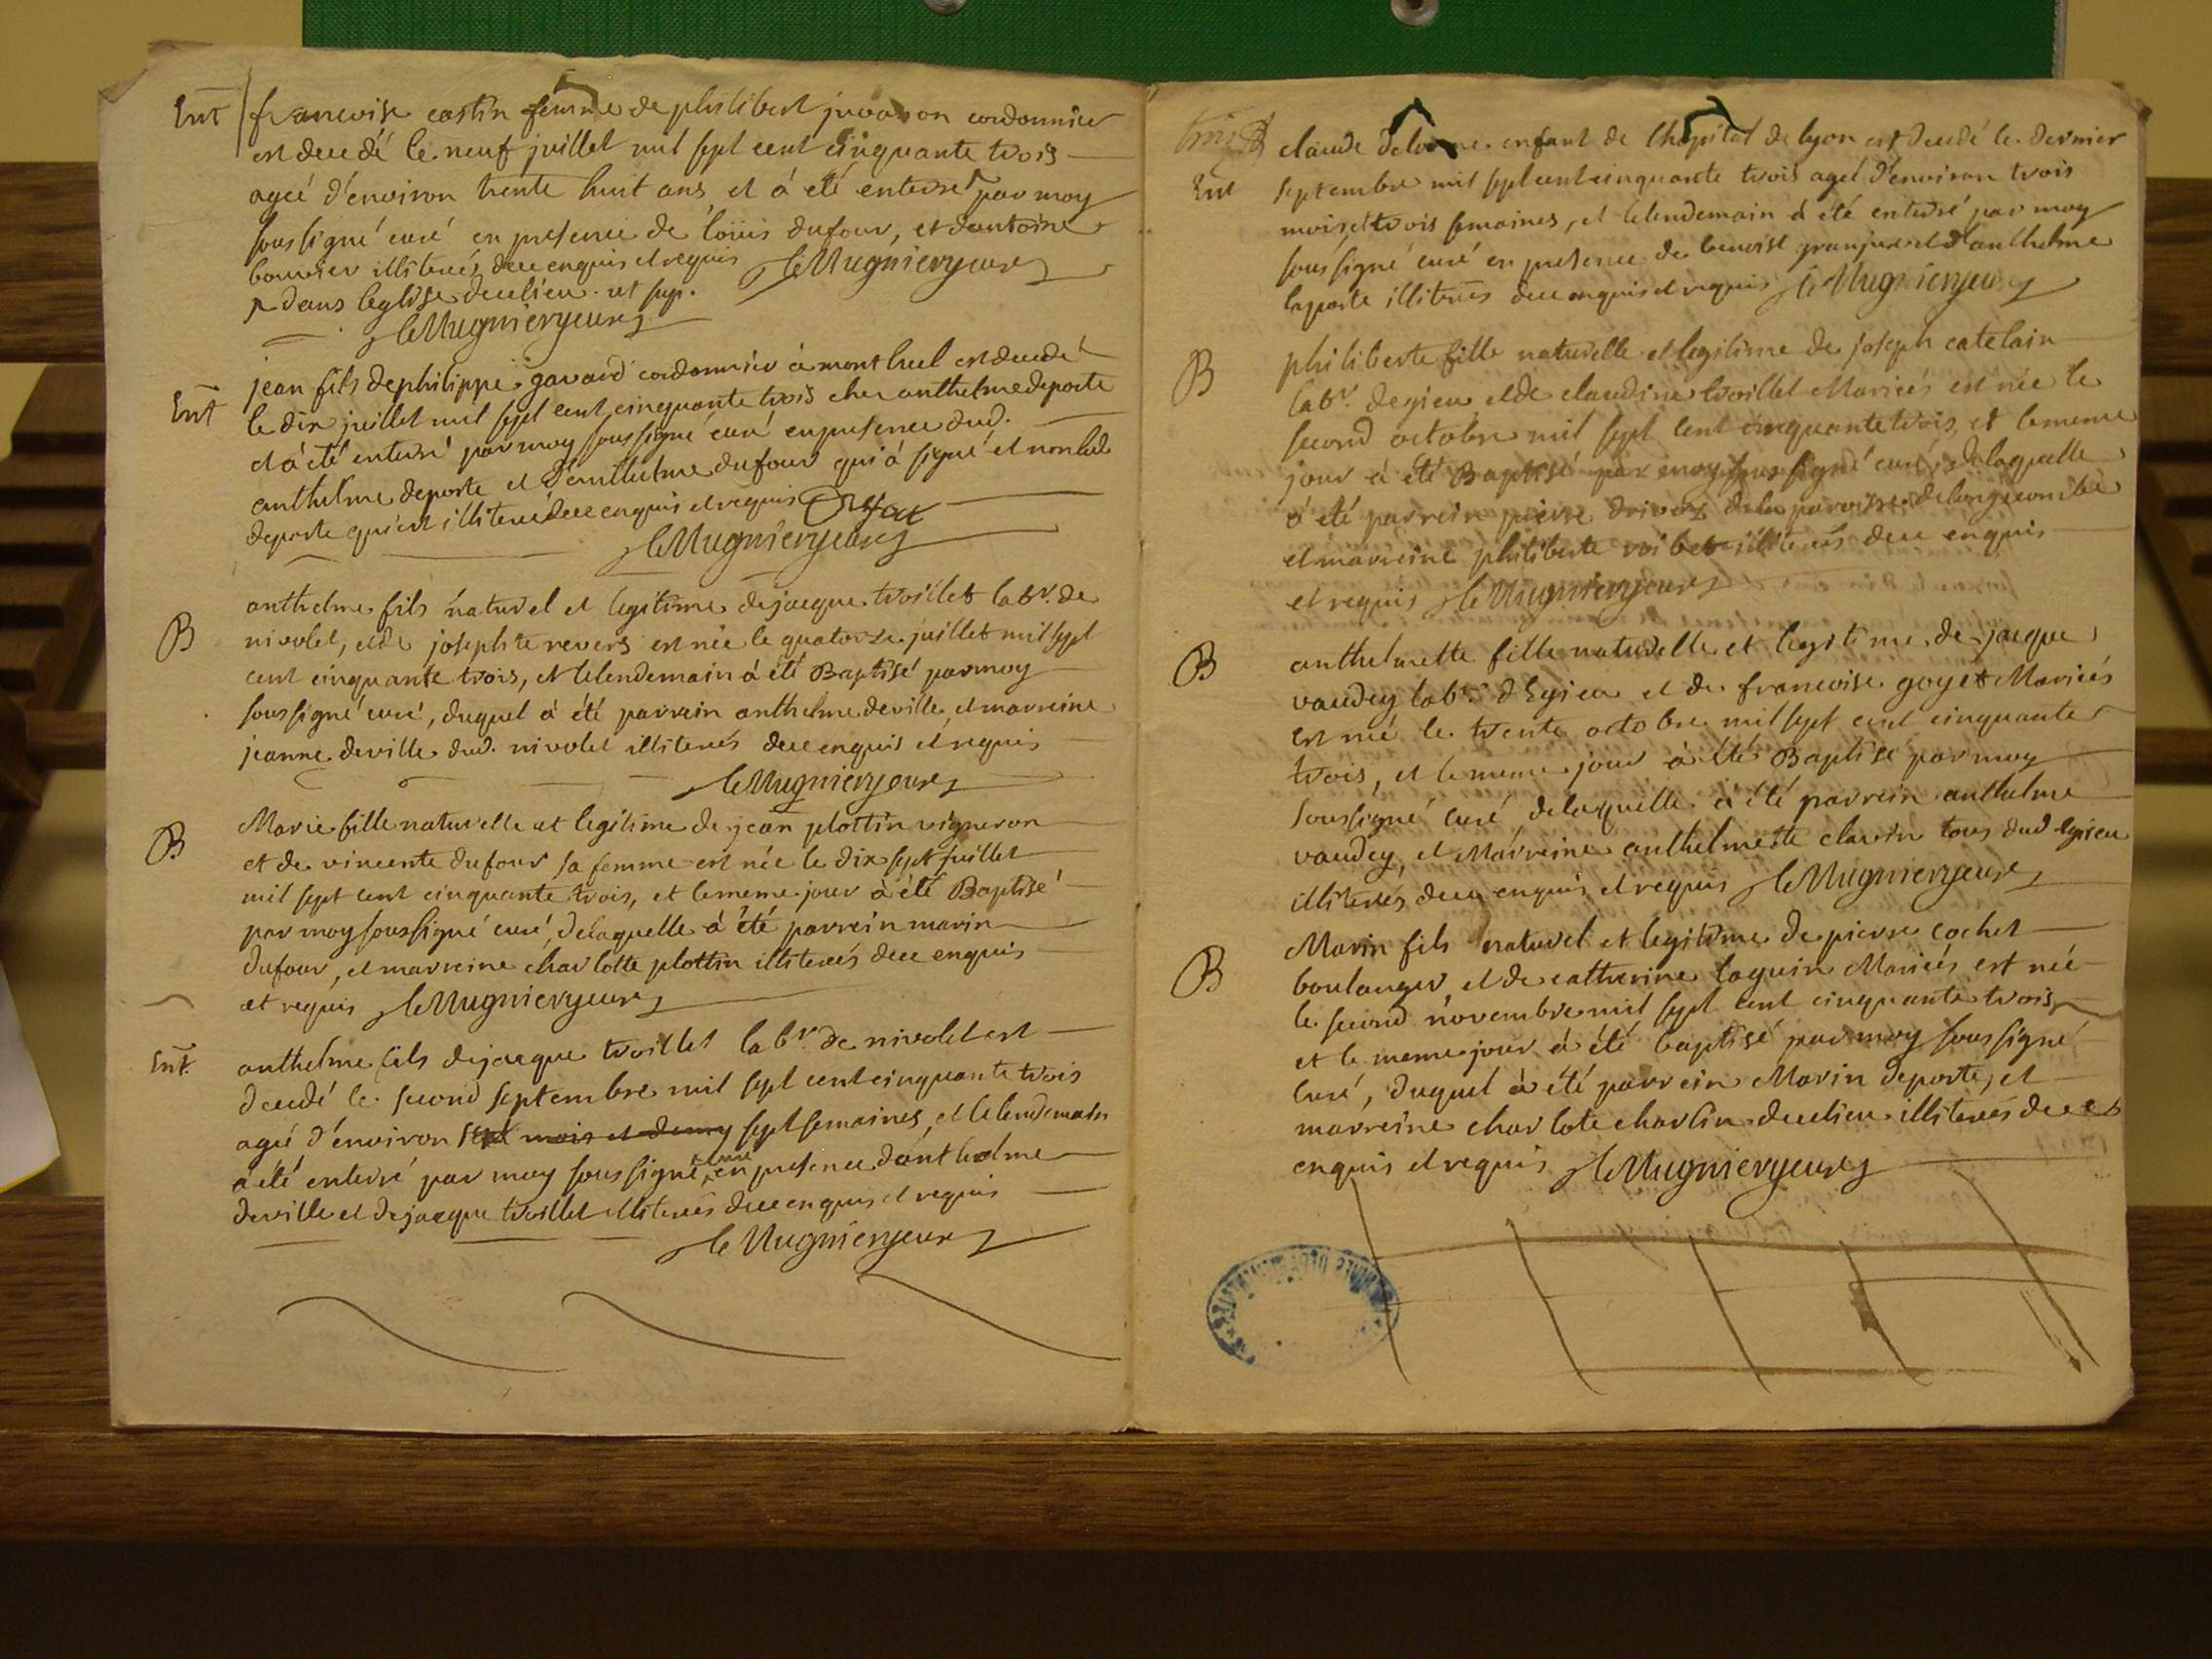 Ent francoise costin femme de philibert juvanon cordonnier
est decedé le neuf juillet mil sept cent cinquante trois
agée d'environ trente huit ans, et à été enterré par moy
soussigné curé en presence de loüis dufour, et dantoine
bouvier illiterés dece enquis et requis leMugnierycuré
dans leglise decelieu. ut sup.
leMugnierycuré
jean fils dephilippe gavard cordonnier à montluel est decedé
Ent le dix juillet mil sept cent cinquante trois chez anthelme deporte
et à été enterré par moy soussigné curé en presence dud.
anthelme deporte et d'emthelme dufour qui à signé et non led
deporte qui est illiteré dece enquis et requis
leMugnierycuré
anthelme fils naturel et legitime dejacque troillet labr. de
B nivolet, et de josephte revers est née le quatorze juillet mil sept
cent cinquante trois, et lelendemain à été Baptisé parmoy
soussigné curé, duquel à été parrain anthelme deville, et marreine
jeanne deville dud. nivolet illiterés dece enquis et requis
leMugnierycuré
Marie fille naturelle et legitime de jean plottin vigneron
B et de vincente dufour sa femme est née le dix sept juillet
mil sept cent cinquante trois, et lememe jour à été Baptisé
par moy soussigné curé, delaquelle à été parrein marin
dufour, et marreine charlotte plottin illiterés dece enquis
et requis leMugnierycuré
Ent anthelme fils dejacque troillet labr. de nivolet est
decedé le second septembre mil sept cent cinquante trois
agé d'environ sept mois et demy sept semaines, et lelendemain
à été enterré par moy soussigné curé en presence danthelme
deville et dejacque troillet illiterés dece enquis et requis
le Mugnierycuré
claude enfant de lhopital de lyon est decedé le dernier
Ent septembre mil sept cent cinquante trois agé d'environ trois
mois et trois semaines, et lelendemain à été enterré par moy
soussigné curé en presence de benoist granjux et d'anthelme
laporte illiterés dece enquis et requis leMugnierycuré
B philiberte fille naturelle et legitime de joseph catelain
labr. degieu et de claudine troillet Mariés est née le
second octobre mil sept cent cinquante trois, et lememe
jour à été Baptisé par moy soussigné curé, delaquelle
à été parrein pierre drivoz dela parroisse delongecombe
et marreine philiberte illiterés dece enquis
et requis leMugnierycuré
B anthelmette fille naturelle et legitime de jacque
vaudey labr. d'Egieu et de francoise goyet Mariés
est née le trente octobre mil sept cent cinquante
trois, et lememe jour à été Baptisé par moy
soussigné curé delaquelle à été parrein anthelme
vaudey, et Marreine anthelmette clavin tous dud Egieu
illiterés dece enquis et requis leMugnierycuré
Marin fils naturel et legitime de pierre cochet
B boulanger, et de catherine laguin Mariés est née
le second novembre mil sept cent cinquante trois
et le meme jour à été baptisé par moy soussigné
curé, duquel à été parrein Marin deporte, et
marreine charlote charlin decelieu illiterés dece
enquis et requis leMugnierycuré